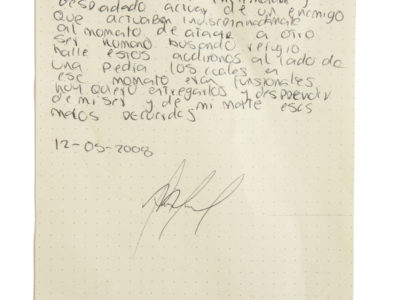 despiadado actuar de un enemigo
que actuaban indiscriminadamente
al momento de atacar a otro
ser humano buscando refugio
halle estos accionros al lado de
una piedra los cuales en
ese momento eran funsionales
hoy quiero entregarlos y desprender
de mi ser y de mi mente esos
malos recuerdos
12-05-2008